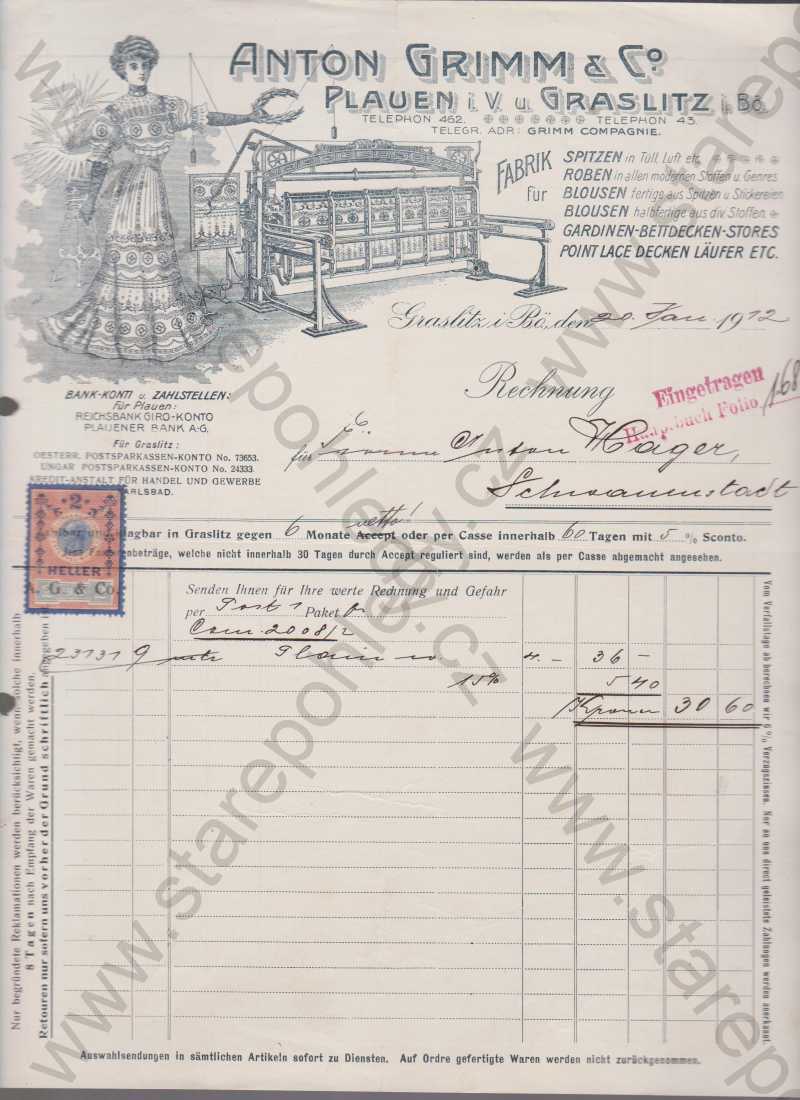 ANTON GRIMM & Co.
PLAUEN i.V. u. GRASLITZ i. Bö.
TELEPHON 462. TELEPHON 43.
TELEGR. ADR: GRIMM COMPAGNIE.
FABRIK für
SPITZEN in Tüll, Luft etc.
ROBEN in allen modernen Stoffen u. Genres
BLOUSEN fertige aus Spitzen u. Stickereien
BLOUSEN halbfertige aus div. Stoffen.
GARDINEN-BETTDECKEN-STORES
POINT LACE DECKEN LÄUFER ETC.
Graslitz i. Bö., den 20. Jan. 1912
BANK-KONTI u. ZAHLSTELLEN:
Für Plauen:
REICHSBANK GIRO-KONTO
PLAUENER BANK A-G.
Für Graslitz:
OESTERR. POSTSPARKASSEN-KONTO No. 73653.
UNGAR POSTSPARKASSEN-KONTO No. 24333
KREDIT-ANSTALT FÜR HANDEL UND GEWERBE
KARLSBAD.
Rechnung
Eingetragen
Hauptbuch Folio 168
für Anton Hager,
Schwanenstadt
2
HELLER
A. G. & Co.
klagbar in Graslitz gegen 6 Monate Accept netto! oder per Casse innerhalb 60 Tagen mit 5 % Sconto.
beträge, welche nicht innerhalb 30 Tagen durch Accept reguliert sind, werden als per Casse abgemacht angesehen.
Senden Ihnen für Ihre werte Rechnung und Gefahr
per Post 1 Paket
Com. 2008/2
23131 9 4.– 36 –
15% 5 40
Kronen 30 60
Nur begründete Reklamationen werden berücksichtigt, wenn solche innerhalb
8 Tagen nach Empfang der Waren gemacht werden.
Retouren nur sofern uns vorher der Grund schriftlich angegeben
Vom Verfallstage ab berechnen wir 6% Verzugszinsen. Nur an uns direkt geleistete Zahlungen werden anerkannt.
Auswahlsendungen in sämtlichen Artikeln sofort zu Diensten. Auf Ordre gefertigte Waren werden nicht zurückgenommen.
www.starepohledy.cz
www.starepohledy.cz
www.starepohledy.cz
www.starepohledy.cz